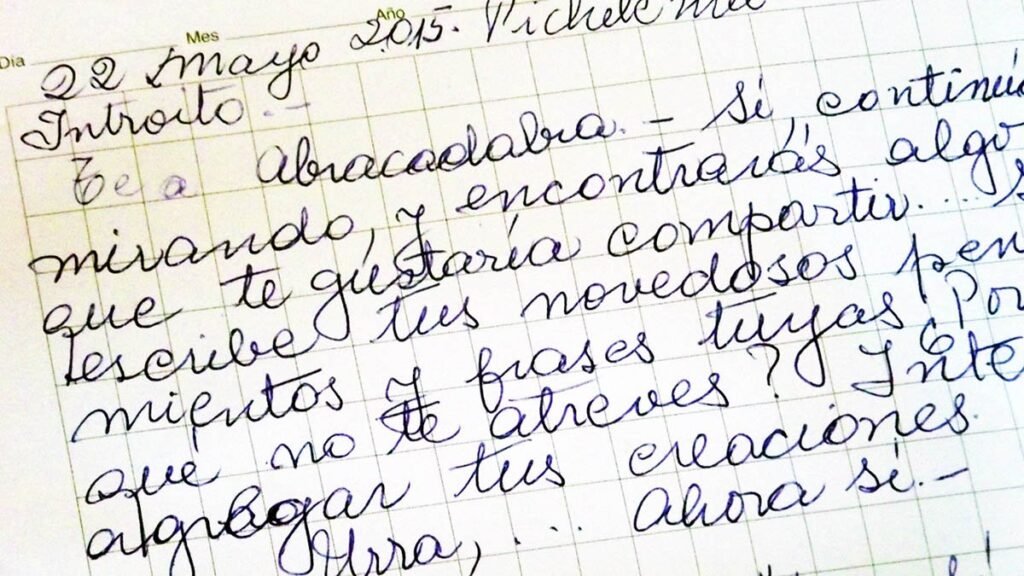 Día Mes Año
22 Mayo 2015. Pichilemu
Introito.-
Abracadabra.- Si, continú
mirando, y encontrarás algo
que te gustaría compartir...
escribe tus novedosos pen
mientos y frases tuyas ¿Por
qué no te atreves? Inte
agregar tus creaciones.
... Ahora si.-